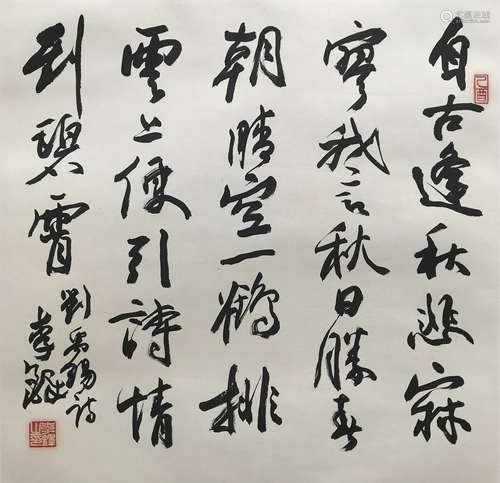 自古逢秋悲寂
寥我言秋日勝春
朝晴空一鶴排
雲上便引詩情
到碧霄
劉禹錫詩
李鐸